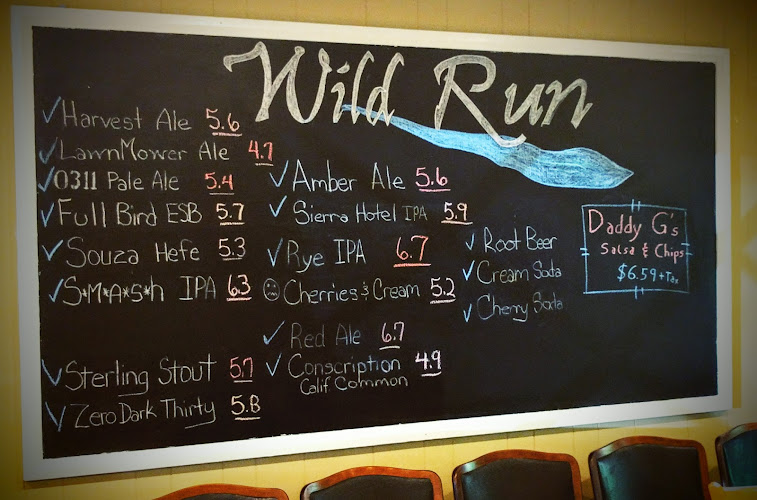 Wild Run
Harvest Ale 5.6
LawnMower Ale 4.7
0311 Pale Ale 5.4
Full Bird ESB 5.7
Souza Hefe 5.3
S*M*A*S*h IPA 6.3
Sterling Stout 5.7
Zero Dark Thirty 5.8
Amber Ale 5.6
Sierra Hotel IPA 5.9
Rye IPA 6.7
Cherries & Cream 5.2
Red Ale 6.7
Conscription 4.9
Calif. Common
Root Beer
Cream Soda
Cherry Soda
Daddy G's
Salsa & Chips
$6.59 + Tax